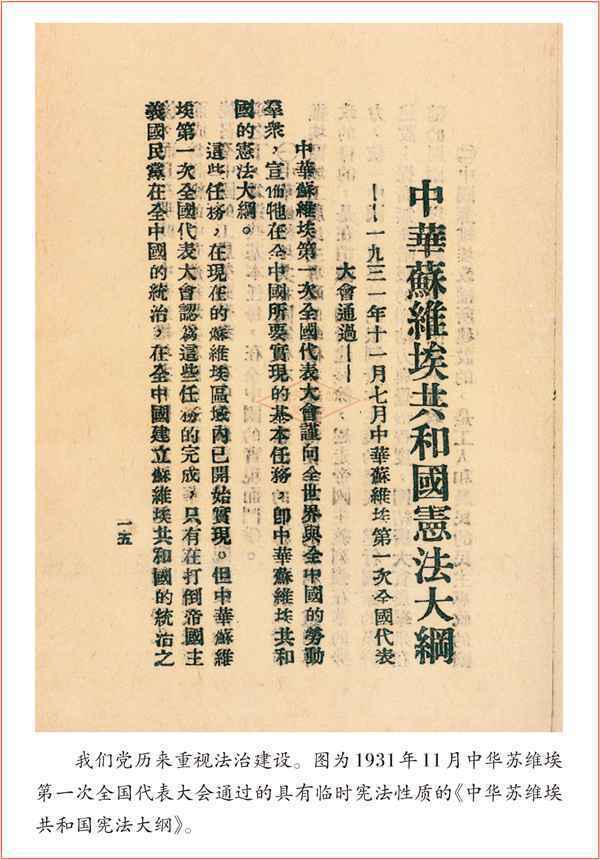 中華蘇維埃共和國憲法大綱
——一九三一年十一月七月中華蘇維埃第一次全國代表
大會通過——
中華蘇維埃第一次全國代表大會謹向全世界與全中國的勞動
羣衆，宣佈牠在全中國所要實現的基本任務，卽中華蘇維埃共和
國的憲法大綱。
這些任務，在現在的蘇維埃區域內已開始實現。但中華蘇維
埃第一次全國代表大會認爲這些任務的完成，只有在打倒帝國主
義國民黨在全中國的統治，在全中國建立蘇維埃共和國的統治之
一五
我们党历来重视法治建设。图为1931年11月中华苏维埃
第一次全国代表大会通过的具有临时宪法性质的《中华苏维埃
共和国宪法大纲》。